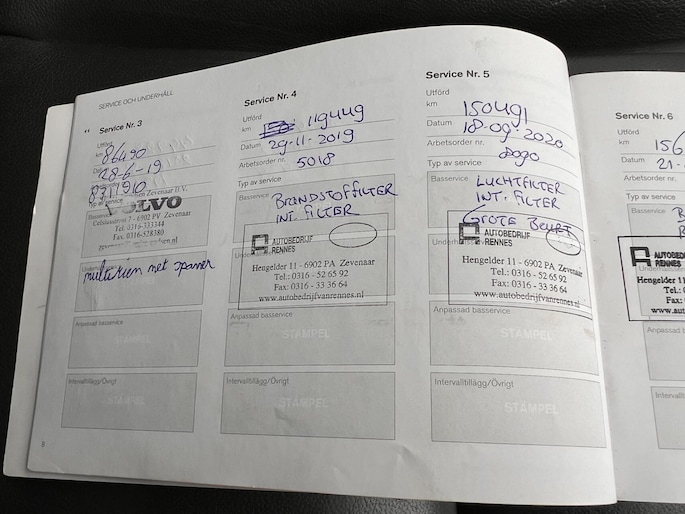 SERVICE OCH UNDERHÅLL
Service Nr. 3
Utförd
km 86490
Datum 28-6-19
8711910
Typ av service
Zevenaar B.V.
VOLVO
Basservice
6902 PV Zevenaar
Tel. 0316-523344
Fax. 0316-528380
multirien met spanner
STÄMPEL
Intervalltillägg/Övrigt
STÄMPEL
8
Service Nr. 4
Utförd
km 119449
Datum 29-11-2019
Arbetsorder nr. 5018
Typ av service
Basservice
BRANDSTOFFILTER
INT. FILTER
AUTOBEDRIJF
RENNES
Hengelder 11 - 6902 PA Zevenaar
Tel.: 0316 - 52 65 92
Fax: 0316 - 33 36 64
www.autobedrijfvanrennes.nl
Anpassad basservice
STÄMPEL
Intervalltillägg/Övrigt
STÄMPEL
Service Nr. 5
Utförd
km 150491
Datum 18-09-2020
Arbetsorder nr.
Typ av service
Basservice
LUCHTFILTER
INT. FILTER
GROTE BEURT
AUTOBEDRIJF
RENNES
Hengelder 11 - 6902 PA Zevenaar
Tel.: 0316 - 52 65 92
Fax: 0316 - 33 36 64
www.autobedrijfvanrennes.nl
Anpassad basservice
STÄMPEL
Intervalltillägg/Övrigt
STÄMPEL
Service Nr. 6
Utförd
km 156
Datum 21-
Arbetsorder nr.
Typ av service
Basservice
AUTOBED
RENNES
Hengelder 11 - 6902
Tel.:
Fax:
www.aut
Anpassad basservice
Intervalltillägg/Övrigt